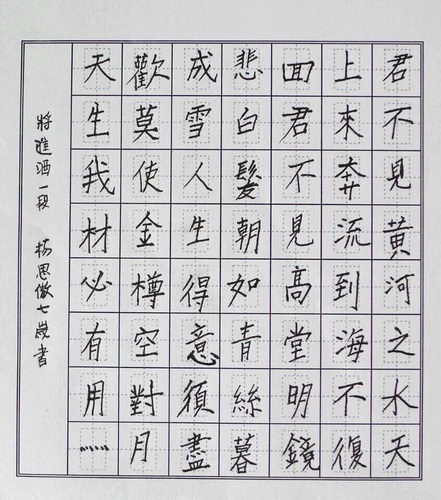 君不見黃河之水天
上來奔流到海不復
回君不見高堂明鏡
悲白髮朝如青絲暮
成雪人生得意須盡
歡莫使金樽空對月
天生我材必有用……
將進酒一段 楊思七歲書